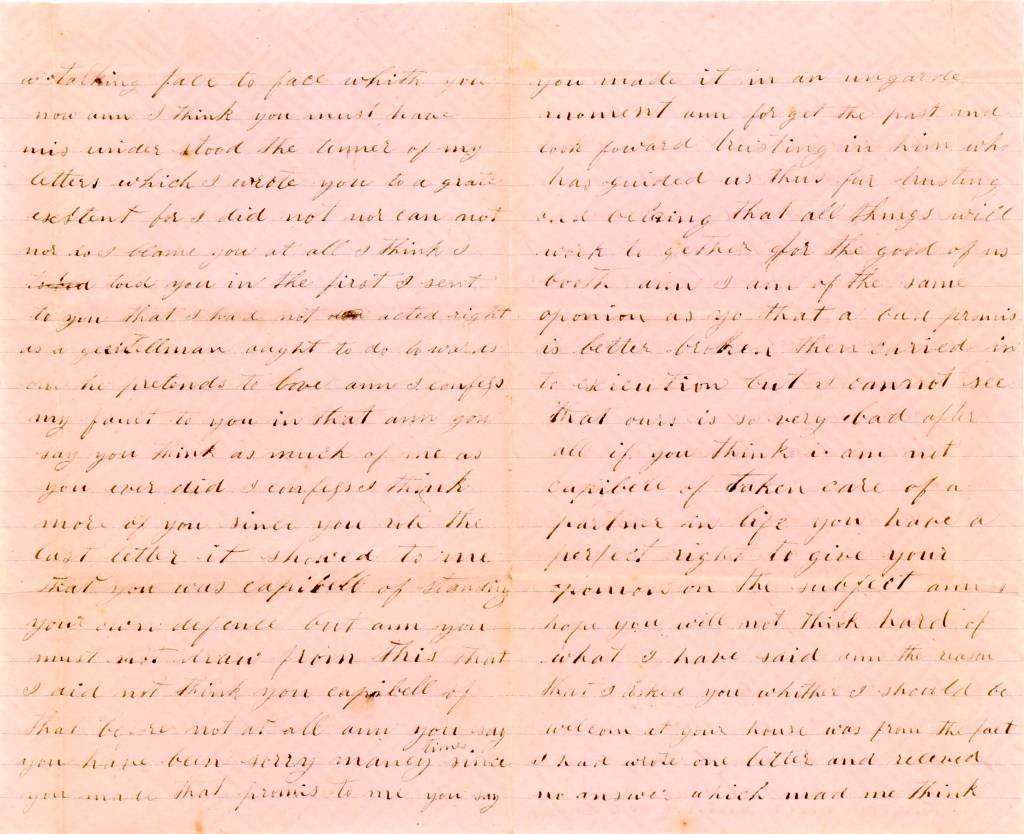 talking face to face whith you
now ann I think you must have
mis under stood the tenner of my
letters which I wrote you to a grate
exstent for I did not nor can not
nor do I blame you at all I think I
told you in the first I sent
to you that I had not acted right
as a gentellman aught to do towards
one he pretends to love ann I confess
my fault to you in that ann you
say you think as much of me as
you ever did I confess I think
more of you since you rote the
last letter it showed to me
that you was capibell of standing
your own defence but ann you
must not draw from this that
I did not think you capibell of
that before not at all ann you say
you have been sorry maney times since
you made that promis to me you say
you made it in an ungarde
moment ann for get the past and
look foward trusting in him who
has guided us thus far trusting
and that all things will
work to gether for the good of us
both ann I am of the same
oponion as yo that a bad promis
is better broken then caried in
to exicution but I cannot see
that ours is so very bad after
all if you think i am not
capibell of taken care of a
partner in life you have a
perfect right to give your
oponion on the subject ann I
hope you will not think hard of
what I have said ann the reason
that I asked you whither I should be
welcom at your house was from the fact
I had wrote one letter and receved
no answer which mad me think